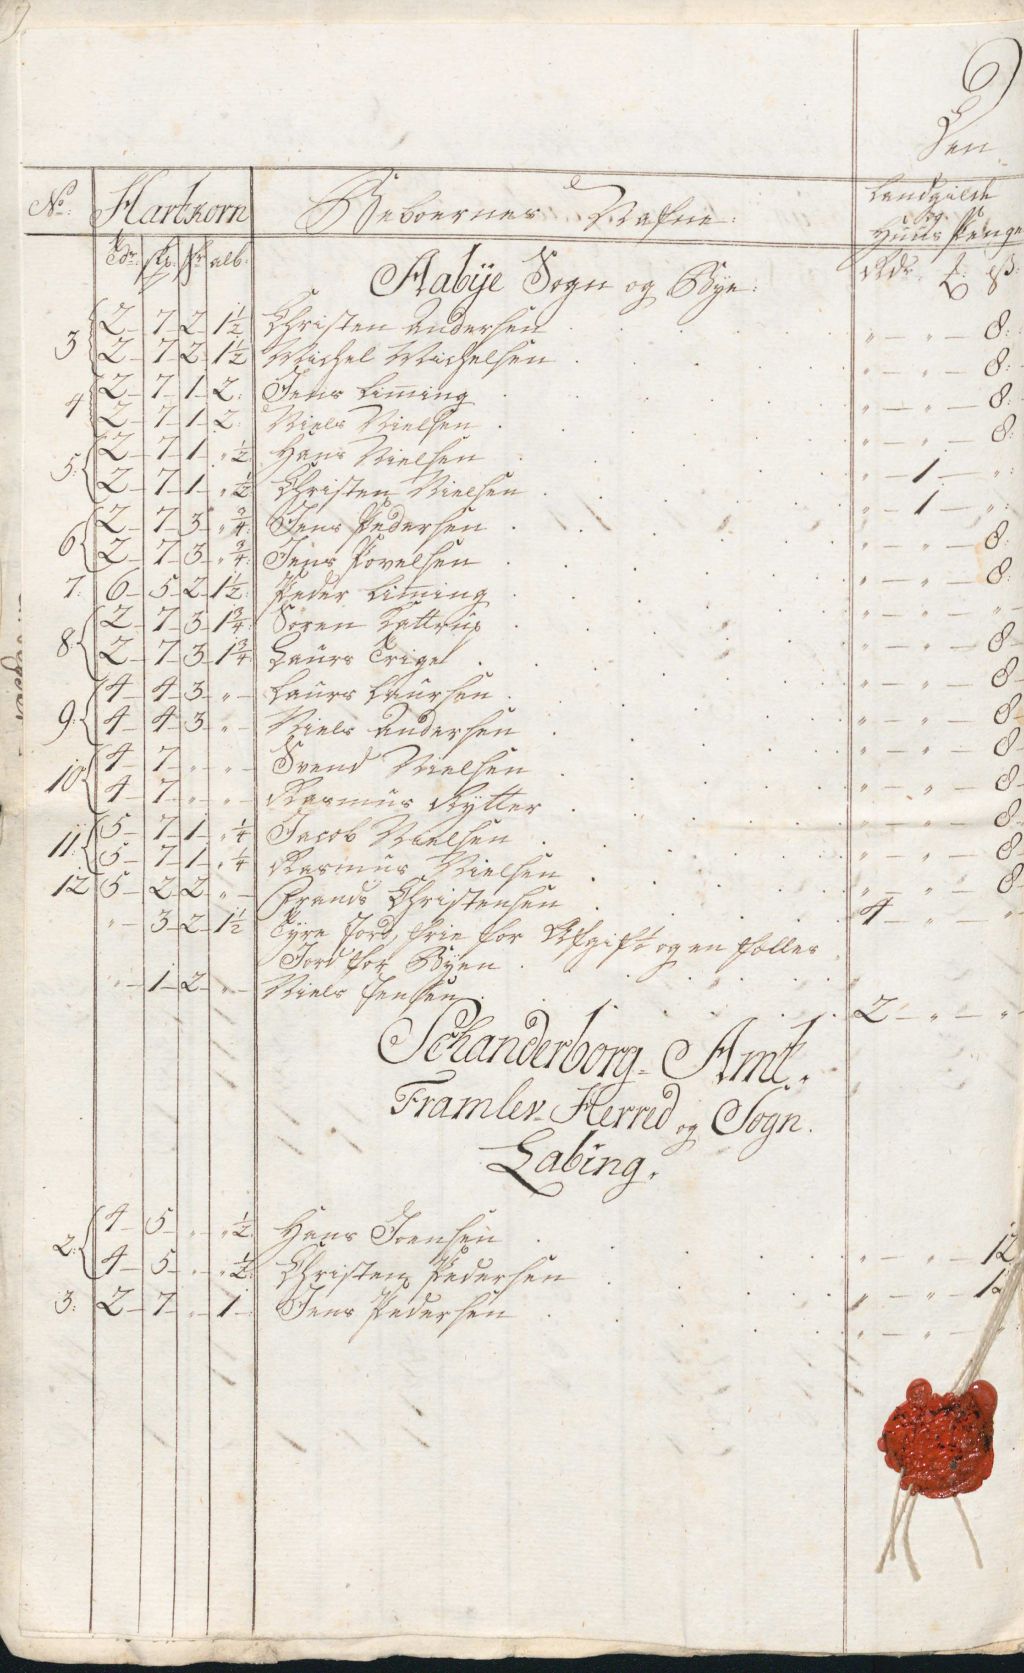 6
Den
No: Hartkorn Beboernes Nafne: Landgilde og Huus Penge
Tdr: skp: fr: alb: Rdr. ß:
Aabÿe Sogn og Bye:
3 2 - 7 2 - 1½ Christen Andersen " - " - 8:
2 - 7 2 - 1½ Michel Michelsen " - " - 8:
4 2 - 7 - 1 - 2: Jens Liming " - " - 8:
2 - 7 - 1 - 2: Niels Nielsen " - " - 8:
5: 2 - 7 - 1 - " ½ Hans Nielsen " - 1 - ":
2 - 7 - 1 - " ½ Christen Nielsen " - 1 - ":
6 2 - 7 - 3 - " ¾: Jens Pedersen " - " - 8:
2 - 7 - 3 - " ¾: Jens Povelsen " - " - 8:
7: 6 - 5 - 2 - 1½: Peder Liming " - " - "
8: 2 - 7 - 3 - 1¾: Søren Kattrup " - " - 8
2 - 7 - 3 - 1¾ Laurs Trige " - " - 8
9: 4 - 4 - 3 - " Laurs Laursen " - " - 8
4 - 4 - 3 - " Niels Andersen " - " - 8
10 4 - 7 - " - " Svend Nielsen " - " - 8
4 - 7 - " - " Rasmus Rytter " - " - 8
11: 5 - 7 - 1 - " ¼ Jacob Nielsen " - " - 8
5 - 7 - 1 - " ¼ Rasmus Nielsen " - " - 8
12 5 - 2 - 2 - " Frands Christensen 4 - " - "
" - 3 - 2 - 1½ Tyre Jord, frie for Afgift og en fælles
Jord for Byen
" - 1 - 2 - " Niels Jensen 2 - " - "
Schanderborg Amt.
Framlev Herred og Sogn.
Labing.
2: 4 - 5 - " - " ½ Hans Joensen " - " - 12
4 - 5 - " - " ½: Christen Pedersen " - " - 12
3: 2 - 7 - " - 1 - Jens Pedersen " - " - "